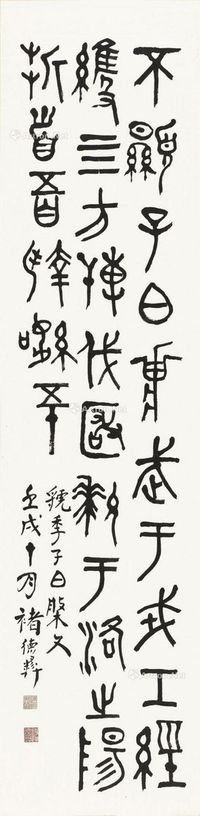 不顯子白壯武于戎工經
維四方搏伐玁狁于洛之陽
折首五百執訊五十
虢季子白槃文
壬戌十月褚德彝